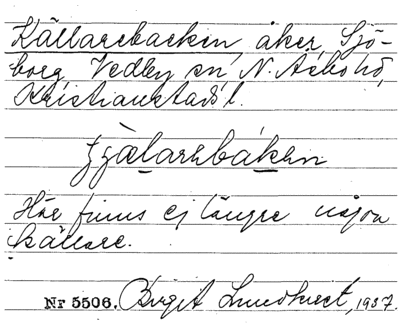 Källarebacken, åker, Sjö-
borg, Vedby sn, N. Åsbo hd,
Kristianstads l.
Här finns ej längre någon
källare.
Nr 5506. Birgit Lundkvist, 1937.